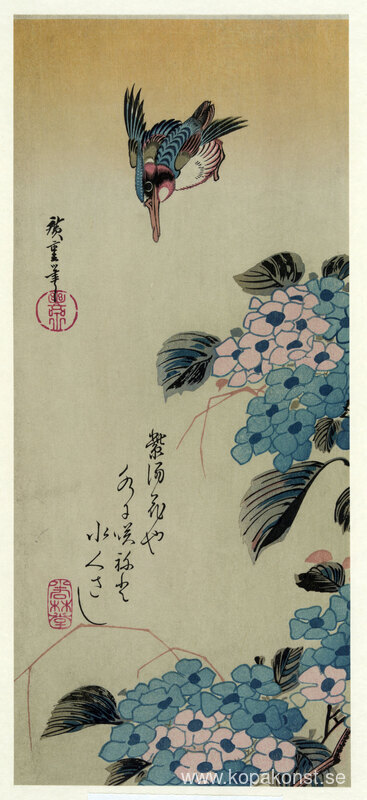 廣重筆
紫陽花や
水に咲ねど
水くさし
www.kopakonst.se